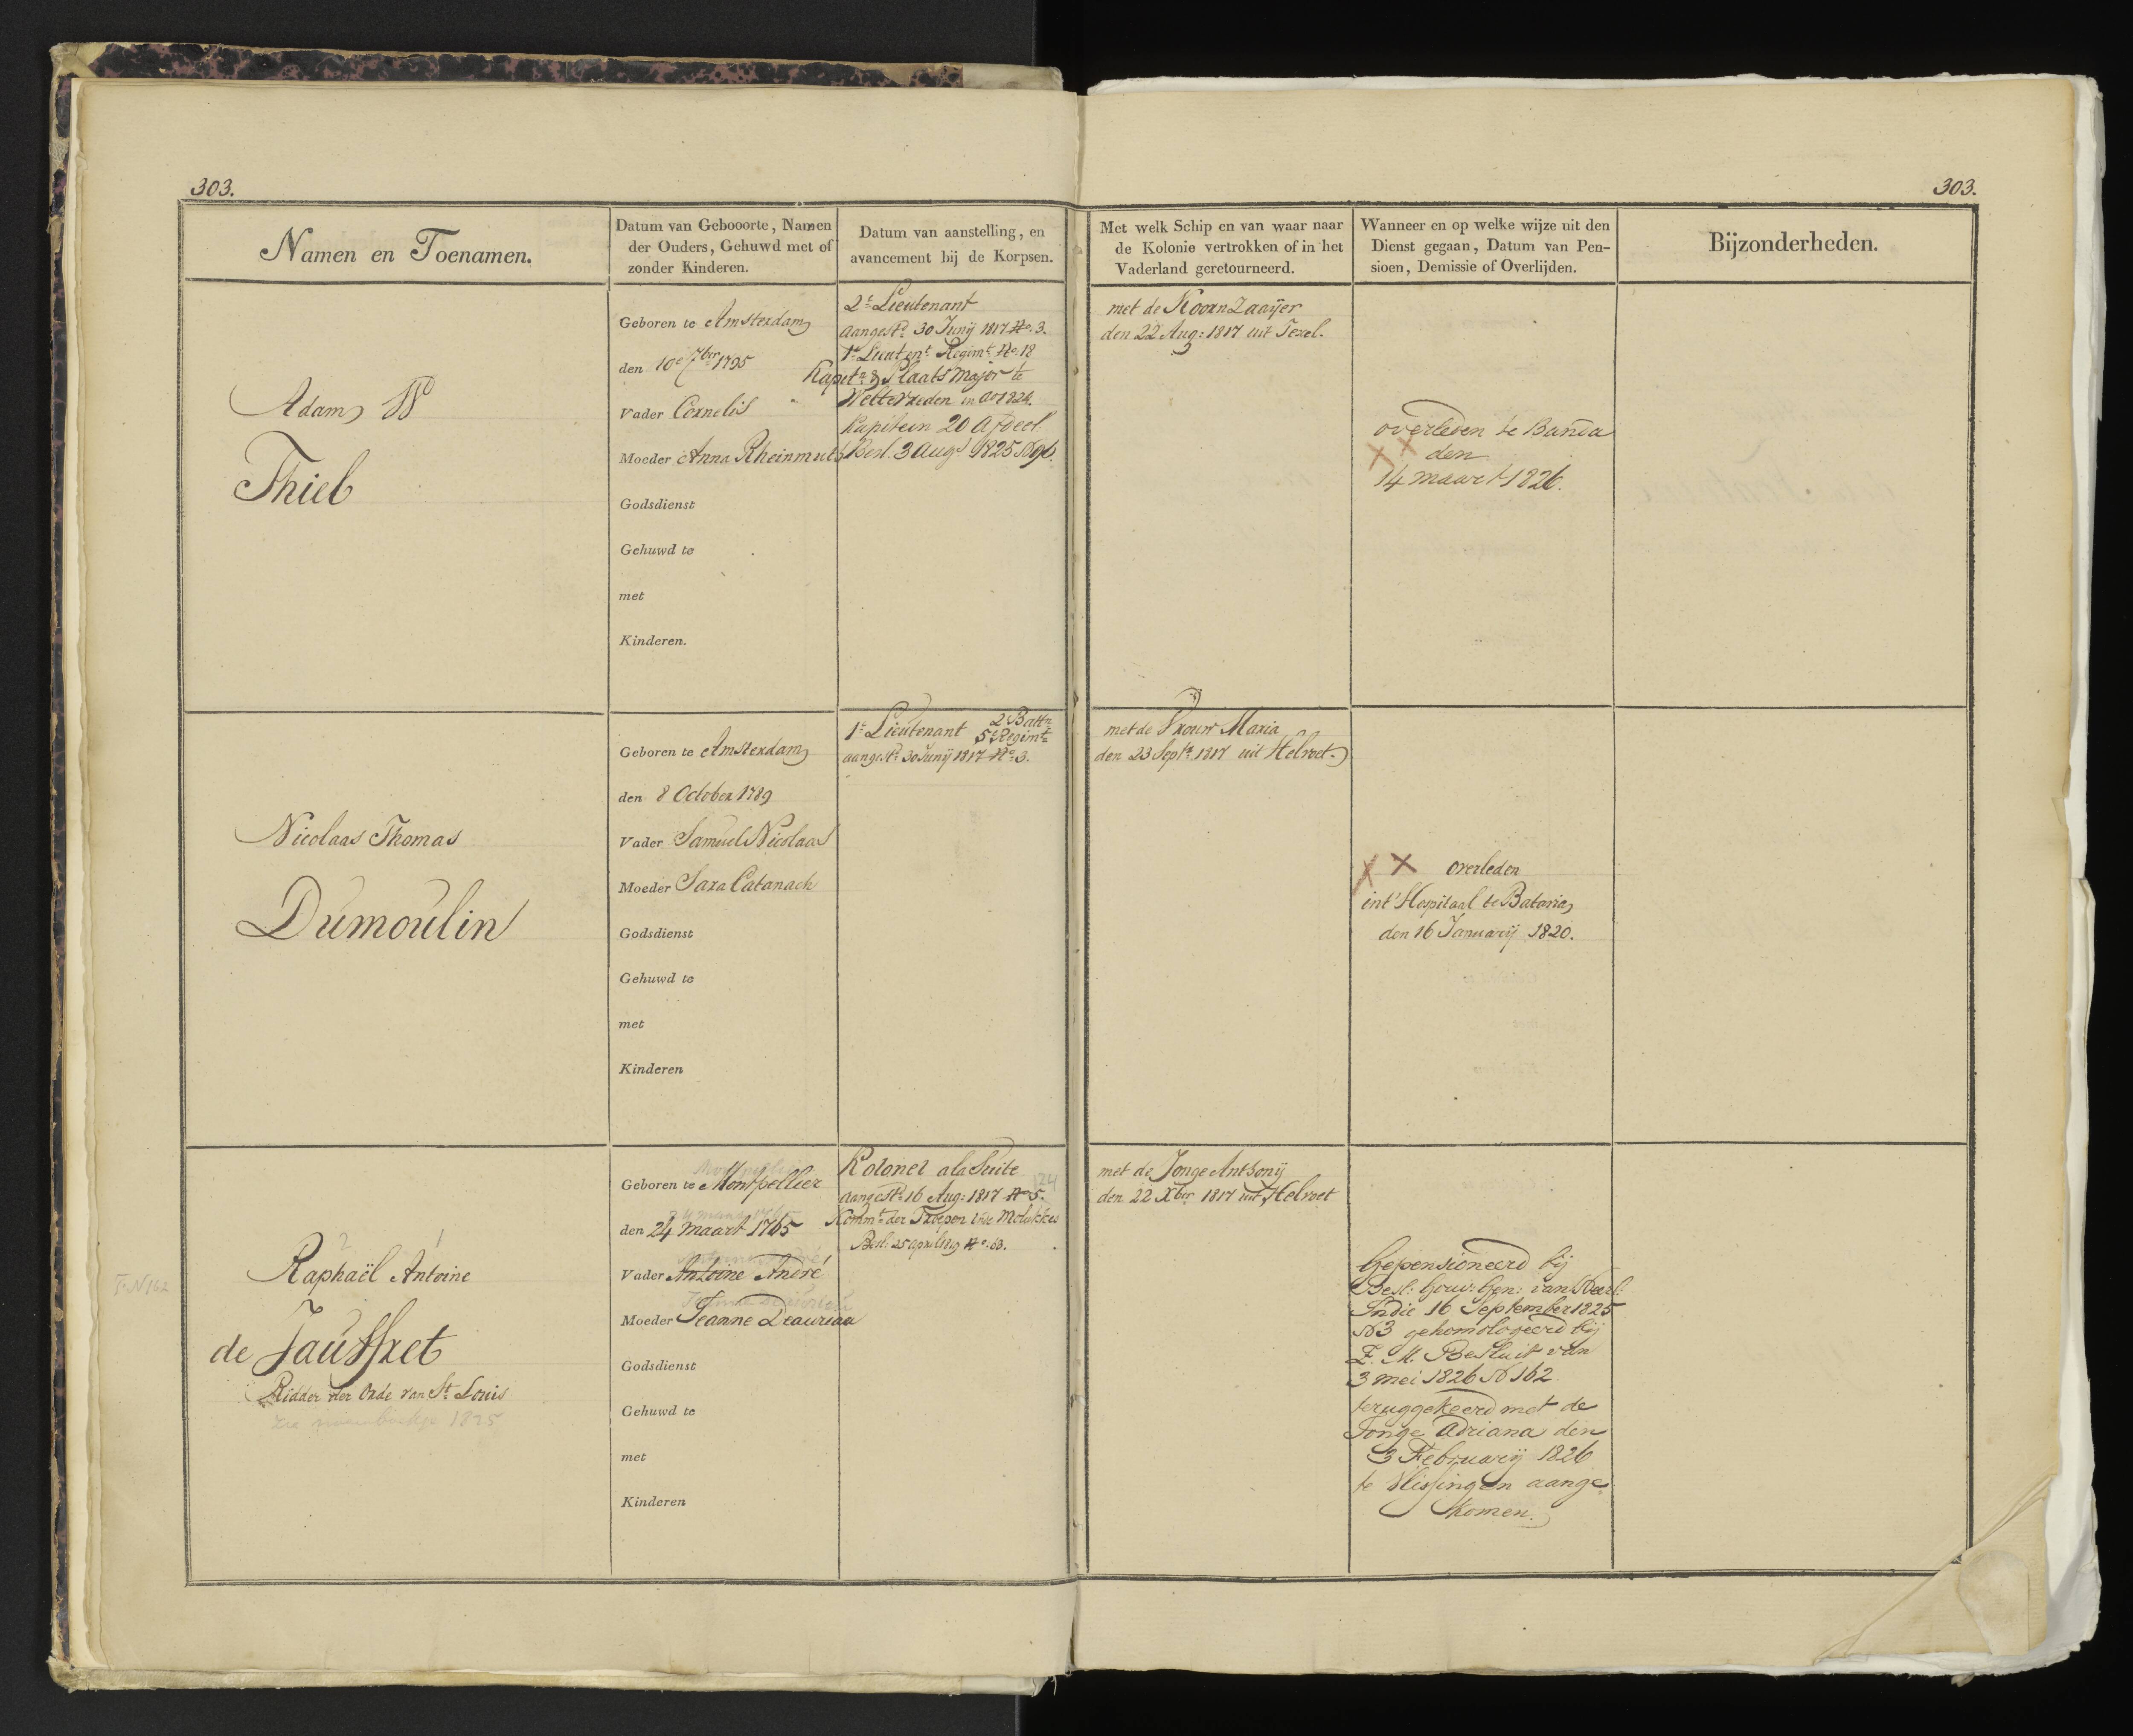 303.
303.
Namen en Toenamen.
Datum van Gebooorte, Namen
der Ouders, Gehuwd met of
zonder Kinderen.
Datum van aanstelling, en
avancement bij de Korpsen.
Met welk Schip en van waar naar
de Kolonie vertrokken of in het
Vaderland geretourneerd.
Wanneer en op welke wijze uit den
Dienst gegaan, Datum van Pen-
sioen, Demissie of Overlijden.
Bijzonderheden.
Adam
Thiel
Geboren te Amsterdam
den 10e 7ber 1795
Vader Cornelis
Moeder Anna Rheinmuth
Godsdienst
Gehuwd te
met
Kinderen.
2e Lieutenant
aangestd 30 Junij 1817 No. 3.
1e Luitent Regimt No. 18
Kapitn & Plaats Major te
Weltevreden in Ao 1824.
Kapitein 20 Afdeel
Besl. 3 Augs 1825 N 96.
met de Koornzaaijer
den 22 Aug: 1817 uit Texel.
overleden te Banda
den
14 maart 1826.
Nicolaas Thomas
Dumoulin
Geboren te Amsterdam
den 8 October 1789
Vader Samuel Nicolaas
Moeder Sara Catanach
Godsdienst
Gehuwd te
met
Kinderen
1e Lieutenant 2 Battn
5e Regimt
aangestd 30 Junij 1817 No. 3.
met de Vrouw Maria
den 23 Septr 1817 uit Helvoet.
overleden
int' Hospitaal te Batavia
den 16 Januarij 1820.
F. N 162
2 1
Raphaël Antoine
de Jauffret
Ridder der Orde van St Louis
1825
Geboren te Montpellier
den 24 Maart 1765
Vader Antoine André
Moeder Jeanne
Godsdienst
Gehuwd te
met
Kinderen
Kolonel ala Suite
124
aangestd 16 Aug: 1817 No 5.
Kommt der Troepen in de Molukkes
Besl: 25 april 1819 No. 63.
met de Jonge Anthonij
den 22 Xber 1817 uit Helvoet
Gepensioneerd bij
Besl: Gouv: Gen: van Neerl:
Indie 16 September 1825
N 3 gehomologeerd bij
Z. M. Besluit van
3 mei 1826 N 162.
teruggekeerd met de
Jonge Adriana den
3 Februarij 1826
te Vlissingen aange
komen.